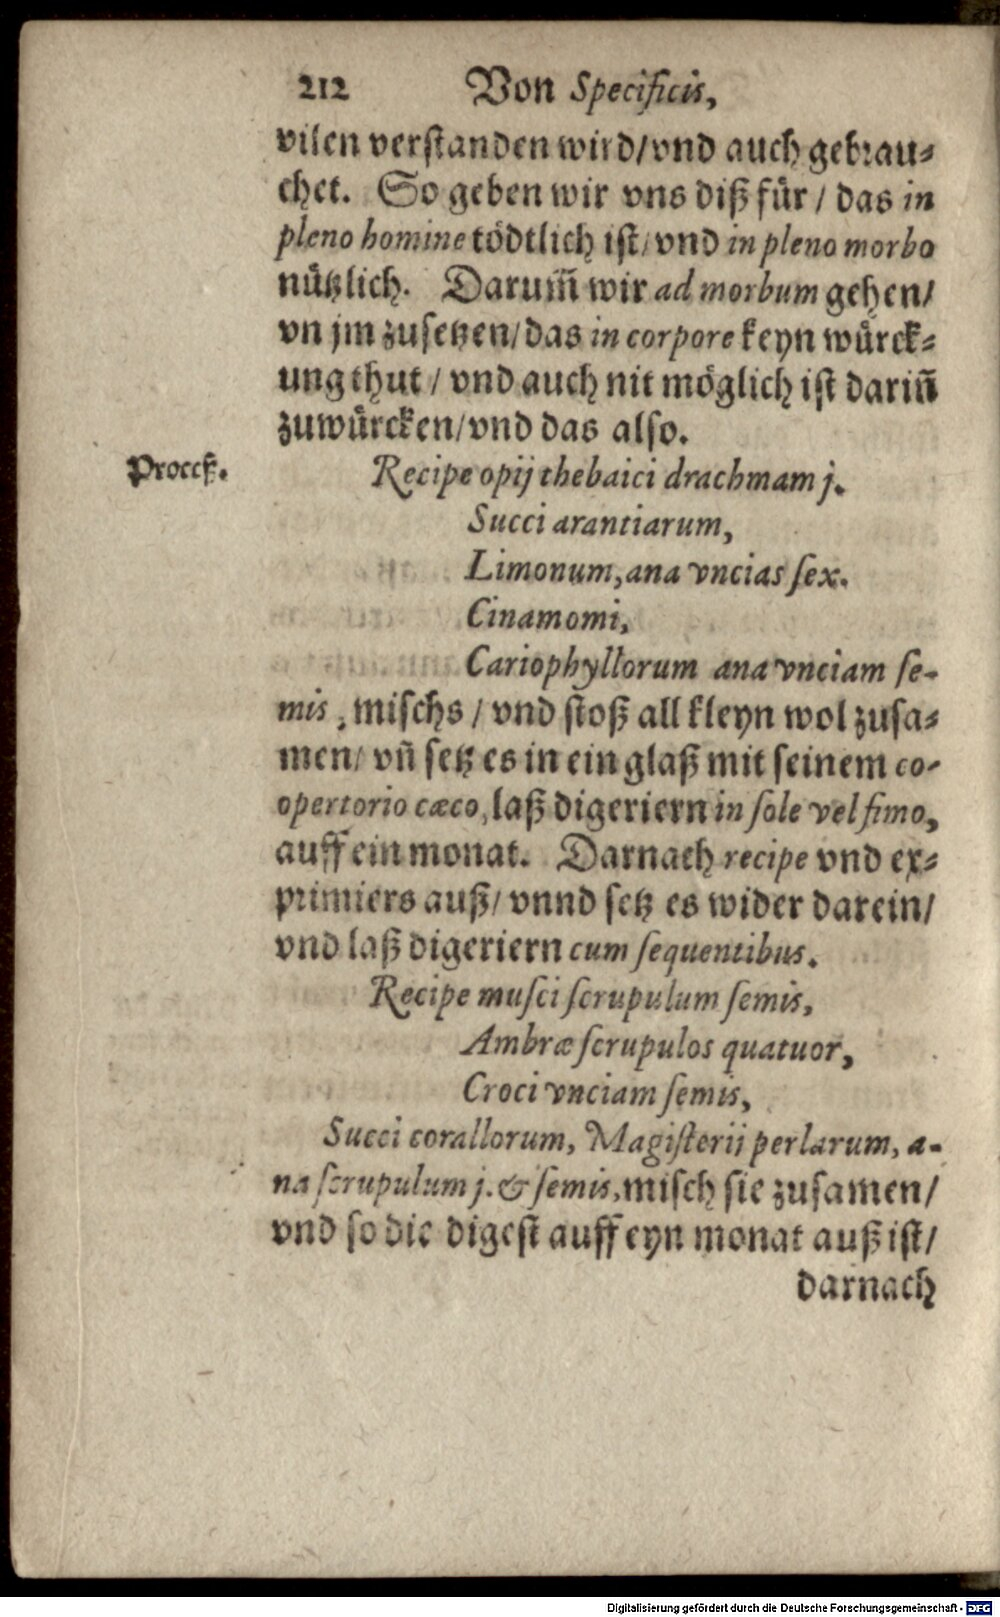 212 Von Specificis,
vilen verstanden wird/vnd auch gebrau⸗
chet. So geben wir vns diß für / das in
pleno homine tödtlich ist/ vnd in pleno morbo
nützlich. Darum̃ wir ad morbum gehen/
vn jm zusetzen/das in corpore keyn würck⸗
ung thut / vnd auch nit möglich ist dariñ
zuwürcken/vnd das also.
Proceß.
Recipe opij thebaici drachmam j.
Succi arantiarum,
Limonum, ana vncias ſex.
Cinamomi,
Cariophyllorum ana vnciam ſe-
mis, mischs / vnd stoß all kleyn wol zusa⸗
men/ vñ setz es in ein glaß mit seinem co-
opertorio cæco, laß digeriern in ſole vel fimo,
auff ein monat. Darnach recipe vnd ex⸗
primiers auß/ vnnd setz es wider darein/
vnd laß digeriern cum ſequentibus.
Recipe muſci ſcrupulum ſemis,
Ambræ ſcrupulos quatuor,
Croci vnciam ſemis,
Succi corallorum, Magiſterii perlarum, a-
na ſcrupulum j. & ſemis, misch sie zusamen/
vnd so die digest auff eyn monat auß ist/
darnach
Digitalisierung gefördert durch die Deutsche Forschungsgemeinschaft - DFG